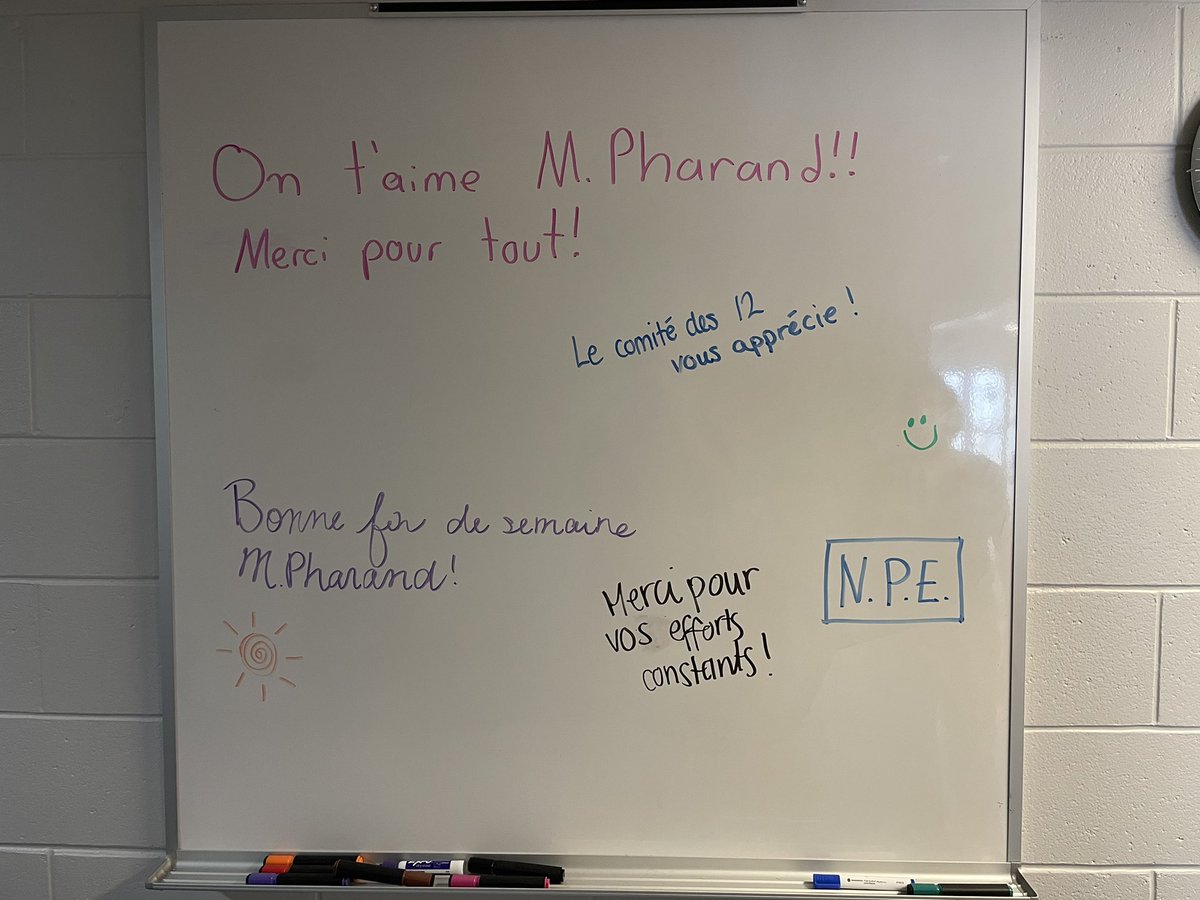 On t'aime M. Pharand!!
Merci pour tout!
Le comité des 12
vous apprécie!
Bonne fin de semaine
M. Pharand!
Merci pour
vos efforts
constants!
N.P.E.